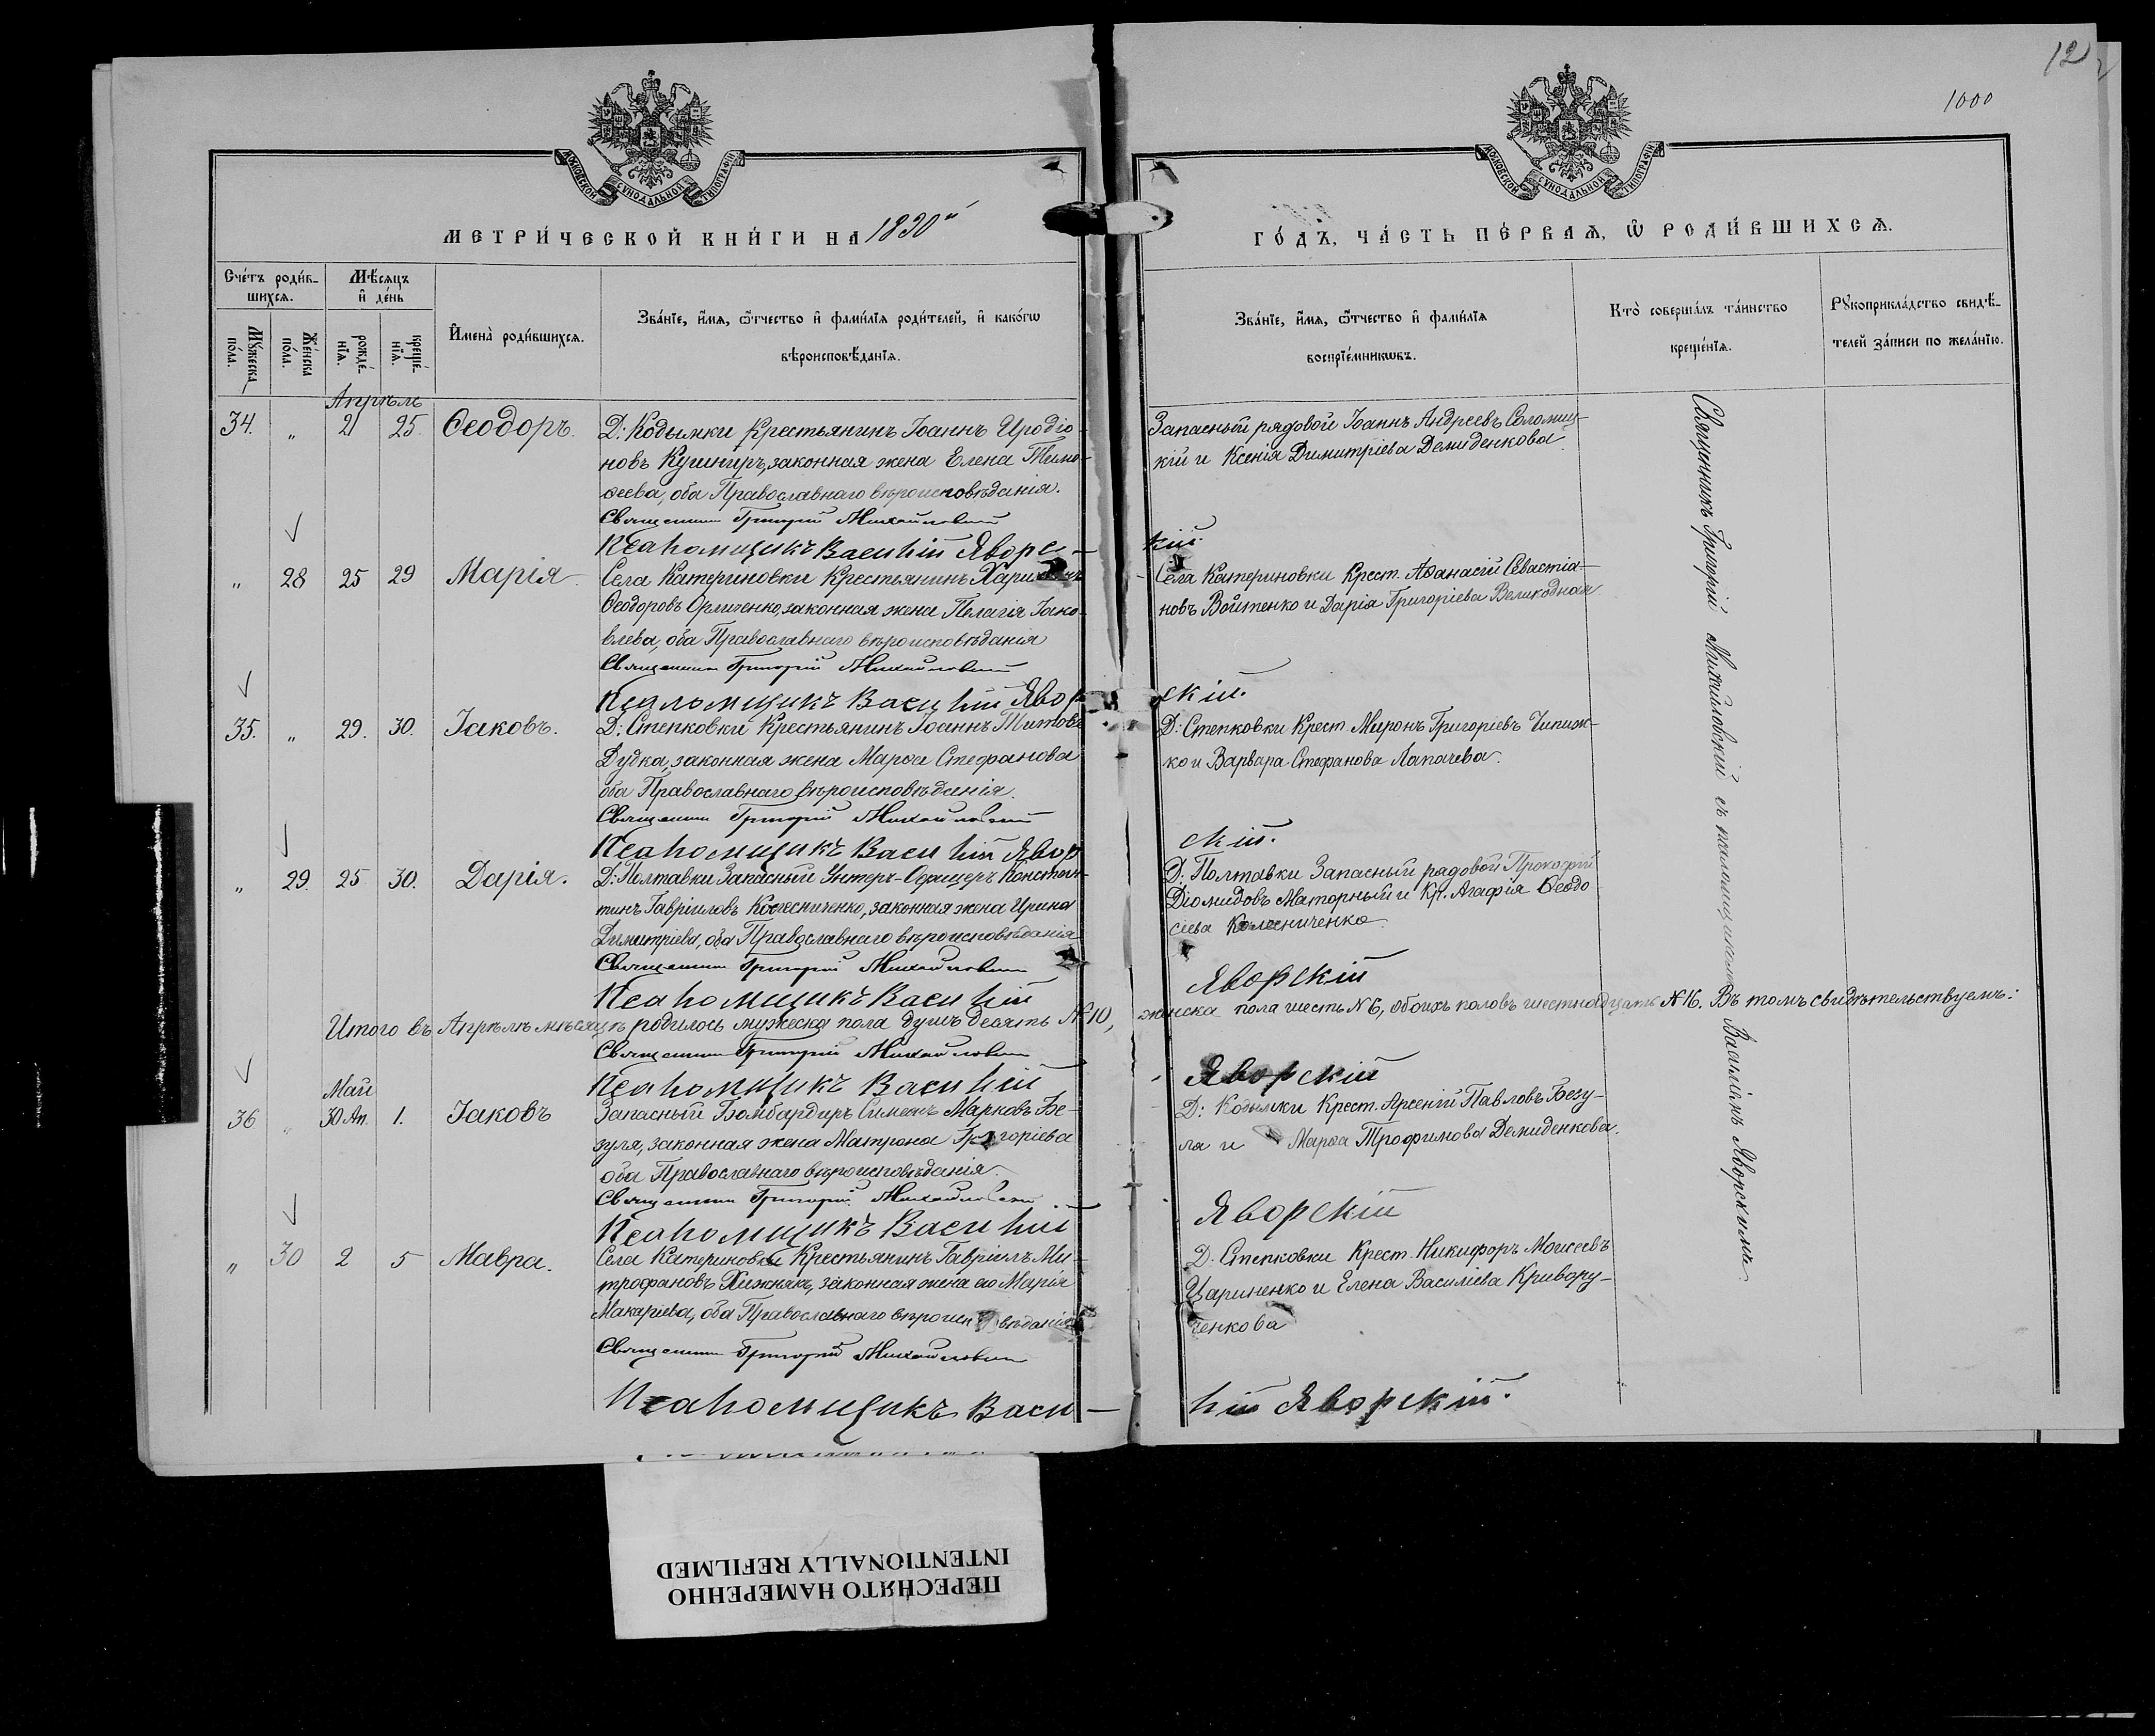 12
1000
МОСКОВСКОЙ СѴНОДАЛЬНОЙ ТИПОГРАФІИ
МОСКОВСКОЙ СѴНОДАЛЬНОЙ ТИПОГРАФІИ
МЕТРИ́ЧЕСКОЙ КНИ́ГИ НА 1890й
ГО́ДЪ, ЧА́СТЬ ПЕ́РВАѦ, Ѡ РОДИ́ВШИХСѦ.
Сче́тъ роди́в-
шихсѧ.
Мѣ́сѧцъ
и҆ де́нь
И҆мена̀ роди́вшихсѧ.
Зва́нїе, и҆́мѧ, ѻ҆́тчество и҆ фами́лїѧ роди́телей, и҆ како́гѡ
вѣроисповѣ́данїѧ.
Мꙋ́жеска
по́ла.
Же́нска
по́ла.
рожде́-
нїѧ.
креще́-
нїѧ.
Зва́нїе, и҆́мѧ, ѻ҆́тчество и҆ фами́лїѧ
воспрїе́мникѡвъ.
Кто̀ соверша́лъ та́инство
креще́нїѧ.
Рꙋкоприкла́дство свидѣ́-
телей за́писи по жела́нїю.
Апрѣль
34. „ 21 25. Ѳеодоръ.
Д: Кодымки Крестьянинъ Іоаннъ Иродіо-
новъ Кушниръ, законная жена Елена Тимо-
ѳеева, оба Православнаго вѣроисповѣданія.
Священникъ Григорій Михайловскій
Псаломщикъ Василій Яворс-
Запасный рядовой Іоаннъ Андреевъ Соломиц-
кій и Ксенія Димитріева Демиденкова
кій.
„ 28 25 29 Марія
Села Катериновки Крестьянинъ
Ѳеодоровъ Орличенко, законная жена Пелагія Іако-
влева, оба Православнаго вѣроисповѣданія
Священникъ Григорій Михайловскій
Псаломщикъ Василій Явор
Села Катериновки Крест. Аѳанасій Севастіа-
новъ Войтенко и Дарія Григоріева Великодная
скій.
35. „ 29. 30. Іаковъ.
Д: Степковки Крестьянинъ Іоаннъ Титовъ
Дудка, законная жена Марѳа Стефанова
оба Православнаго вѣроисповѣданія.
Священникъ Григорій Михайловскій
Псаломщикъ Василій Явор
Д: Степковки Крест. Миронъ Григоріевъ Чипиж-
ко и Варвара Стефанова Лапачева.
скій.
„ 29. 25 30. Дарія.
Д: Полтавки Запасный Унтеръ-Офицеръ Констан-
тинъ Гавріиловъ Колесниченко, законная жена Ирина
Димитріева, оба Православнаго вѣроисповѣданія
Священникъ Григорій Михайловскій
Псаломщикъ Василій
Д. Полтавки Запасный рядовой Прокофій
Діомидовъ Маторный и Кр. Агафія Ѳеодо-
сіева Колесниченко
Яворскій
Итого въ Апрѣлѣ мѣсяцѣ родилось мужеска пола душъ десять № 10, женска пола шесть № 6, обоихъ половъ шестнадцать № 16. Въ томъ свидѣтельствуемъ:
Священникъ Григорій Михайловскій
Псаломщикъ Василій
Яворскій
Май
36 „ 30 Ап. 1. Іаковъ
Запасный Бомбардиръ Симеонъ Марковъ Бе-
зуля, законная жена Матрона Григоріева
оба Православнаго вѣроисповѣданія.
Священникъ Григорій Михайловскій
Псаломщикъ Василій
Д: Кодымки Крест. Арсеній Павловъ Безу-
ла и Марѳа Трофимова Демиденкова.
Яворскій
„ 30 2 5 Мавра.
Села Катериновки Крестьянинъ Гавріилъ Ми-
трофановъ Хижнякъ, законная жена его Марія
Макаріева, оба Православнаго вѣроисповѣданія
Священникъ Григорій Михайловскій
Псаломщикъ Васи-
Д. Степковки Крест. Никифоръ Моисеевъ
Цариненко и Елена Василіева Кривору-
ченкова
лій Яворскій.
Священникъ Григорій Михайловскій съ псаломщикомъ Василіемъ Яворскимъ
ПЕРЕСНЯТО НАМЕРЕННО
INTENTIONALLY REFILMED